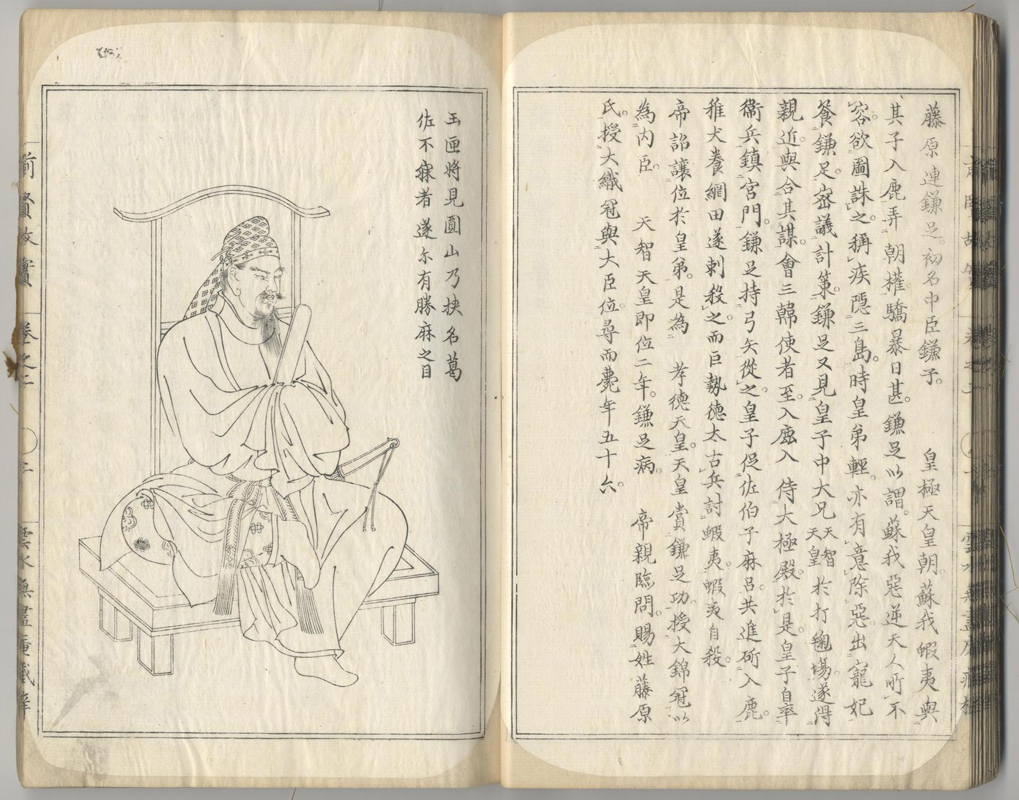 藤原連鎌足。初名中臣鎌子。　皇極天皇朝。蘇我蝦夷與
其子入鹿弄　朝權驕暴日甚。鎌足以謂。蘇我惡逆天人所不
容。欲圖誅之。稱疾隱三島。時皇弟輕。亦有意除惡。出寵妃
養鎌足。密議計策。鎌足又見皇子中大兄天智天皇於打毱場。遂得
親近與合其謀。會三韓使者至。入鹿入　侍大極殿。於是皇子自率
衛兵鎮宮門。鎌足持弓矢從之。皇子促佐伯子麻呂共進斫入鹿。
稚犬養網田遂刺殺之。而巨勢德太古兵討蝦夷。蝦夷自殺。
帝詔讓位於皇弟。是為　孝德天皇。天皇賞鎌足功。授大錦冠。以
為內臣。　天智天皇即位二年。鎌足病。　帝親臨問。賜姓藤原
氏。授大織冠與大臣位。尋而薨。年五十六。
玉匣將見圓山乃抉名葛
佐不寐者遂尓有勝麻之目
前賢故實　卷之一